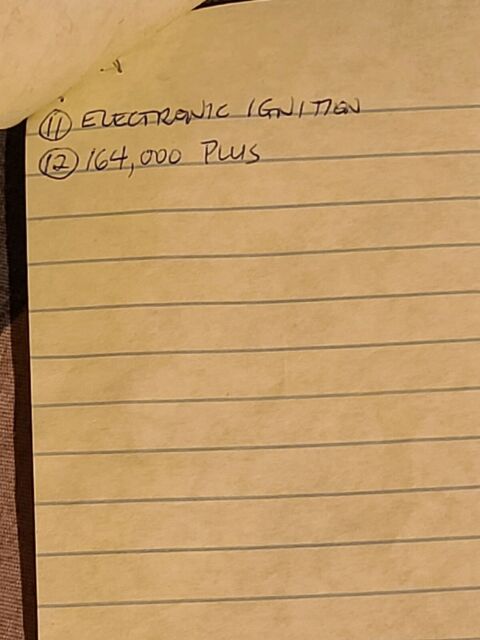 ⑪ ELECTRONIC IGNITION
⑫ 164,000 PLUS